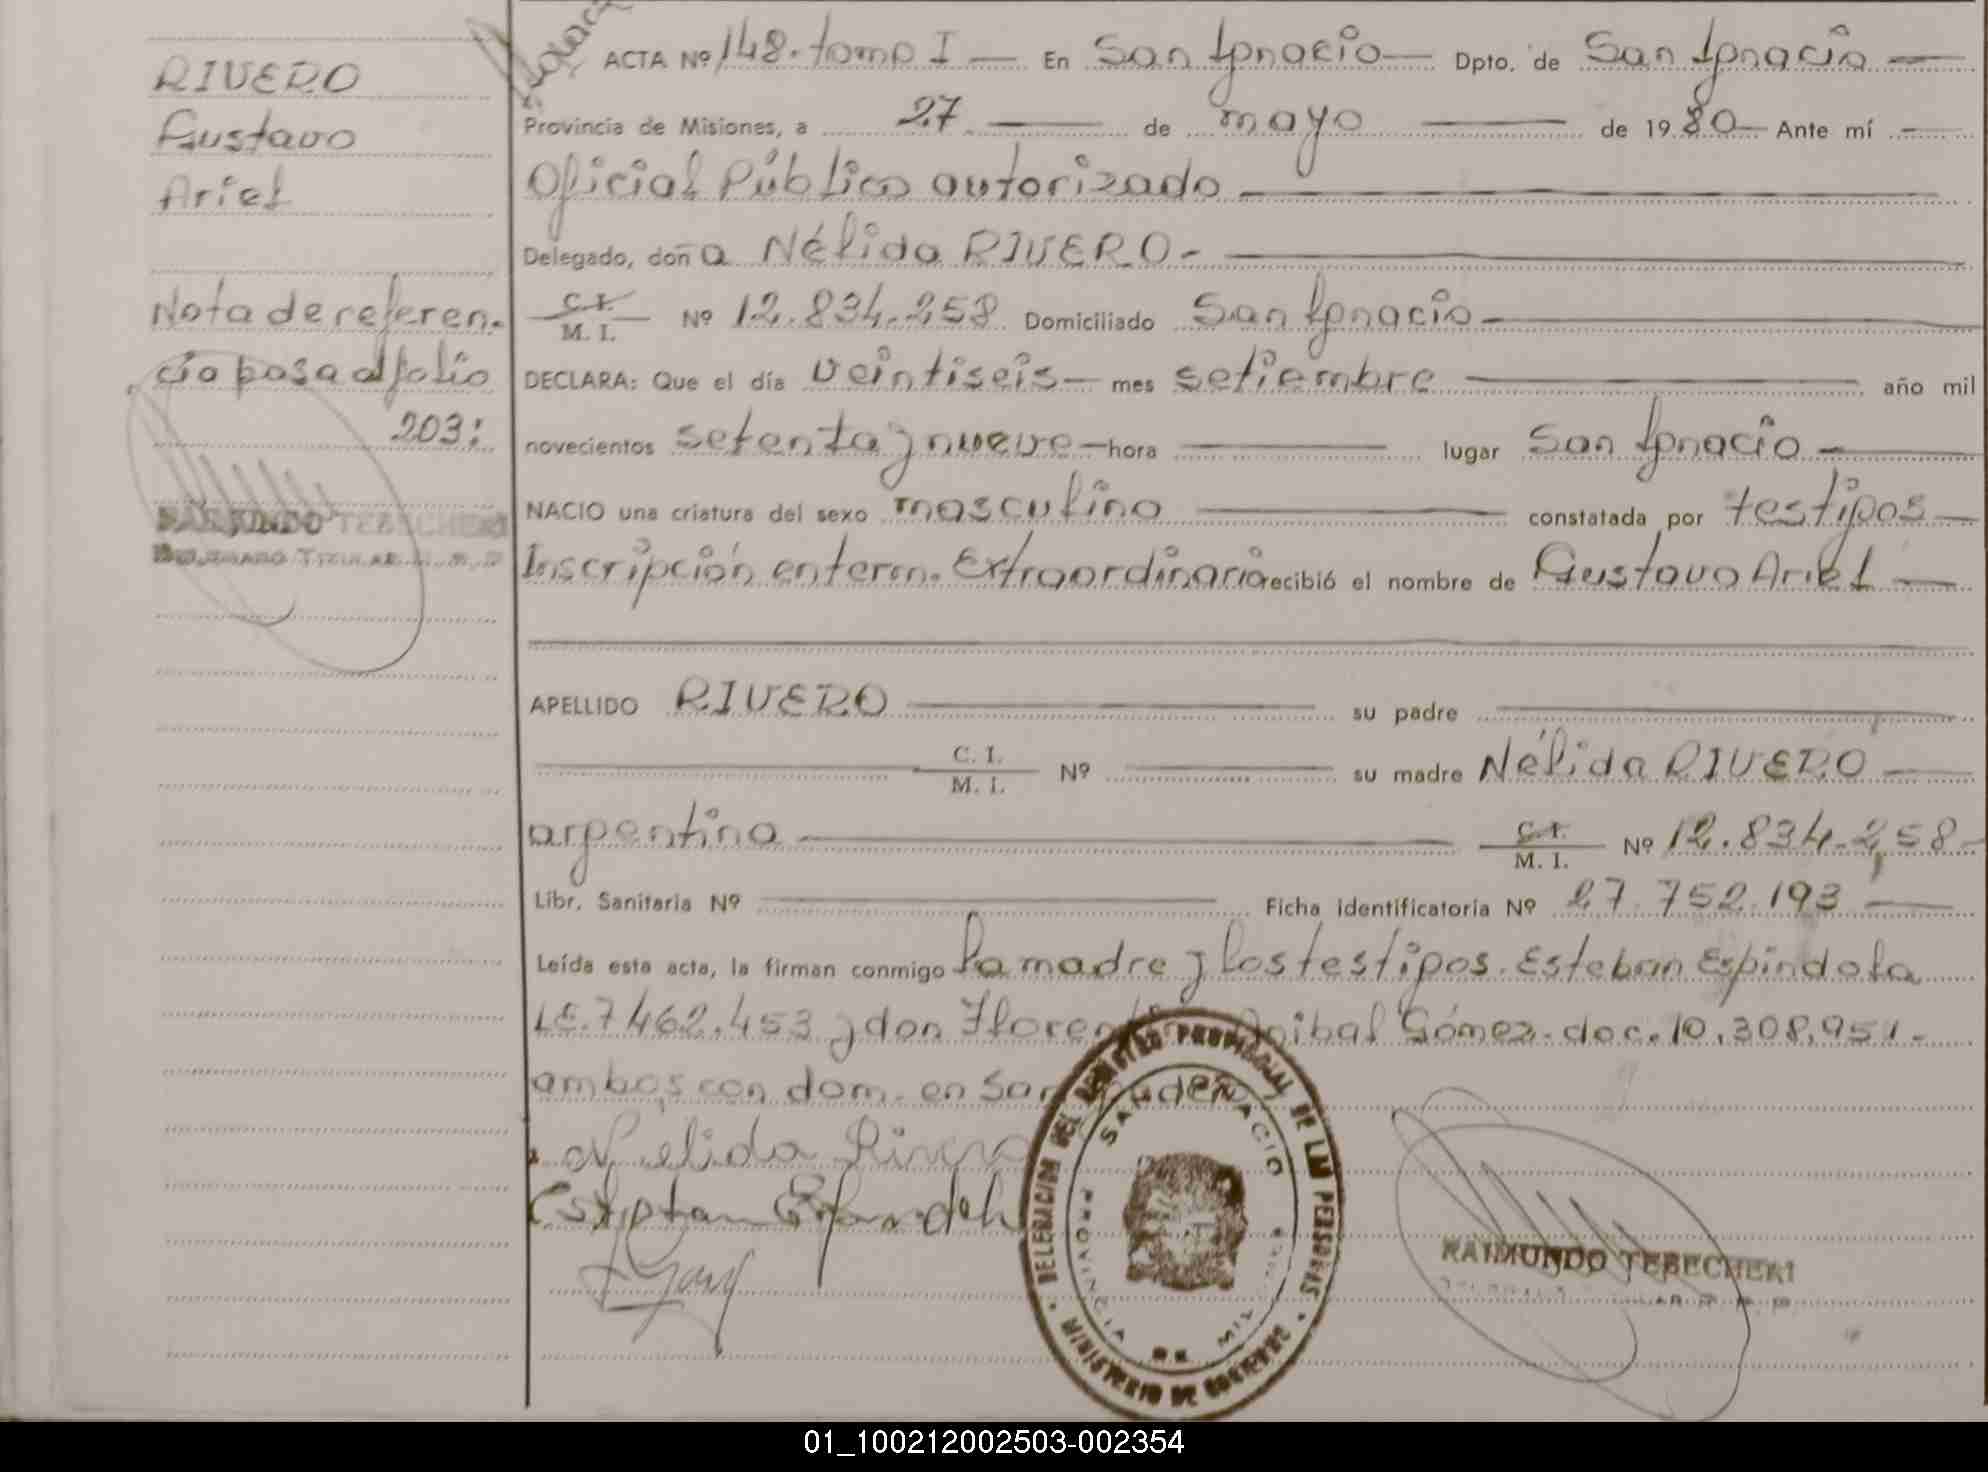 RIVERO
Gustavo
Ariel
Nota de referen.
cia pasa al folio
203:
RAIMUNDO TEBECHERI
DELEGADO TITULAR R. P. P.
ACTA Nº 148. tomo I — En San Ignacio — Dpto. de San Ignacio —
Provincia de Misiones, a 27 — de mayo — de 1980 — Ante mí —
Oficial Público autorizado —
Delegado, doña Nélida RIVERO. —
C. I. / M. I. Nº 12.834.258 Domiciliado San Ignacio —
DECLARA: Que el día veintiseis — mes setiembre — año mil
novecientos setenta y nueve — hora — lugar San Ignacio —
NACIO una criatura del sexo masculino — constatada por testigos —
Inscripción en term. Extraordinario recibió el nombre de Gustavo Ariel —
APELLIDO RIVERO — su padre —
— C. I. / M. I. Nº — su madre Nélida RIVERO —
argentina — C. I. / M. I. Nº 12.834.258 —
Libr. Sanitaria Nº — Ficha identificatoria Nº 27.752.193 —
Leída esta acta, la firman conmigo la madre y los testigos. Esteban Espindola
LE. 7462.453 y don Anibal Gómez. doc. 10.308.951.
ambos con dom. en
Nelida Rivero
DELEGACION DEL REGISTRO PROVINCIAL DE LAS PERSONAS
MINISTERIO DE GOBIERNO
SAN IGNACIO
PROVINCIA DE MISIONES
RAIMUNDO TEBECHERI
01_100212002503-002354